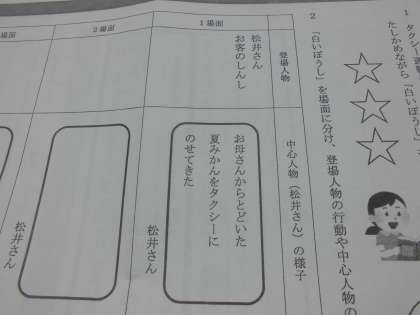 1 タクシー運
たしかめながら「白いぼうし」
2 「白いぼうし」を場面に分け、登場人物の行動や中心人物の
登場人物
中心人物（松井さん）の様子
1場面
松井さん
お客のしんし
お母さんからとどいた
夏みかんをタクシーに
のせてきた
松井さん
2場面
松井さん
場面